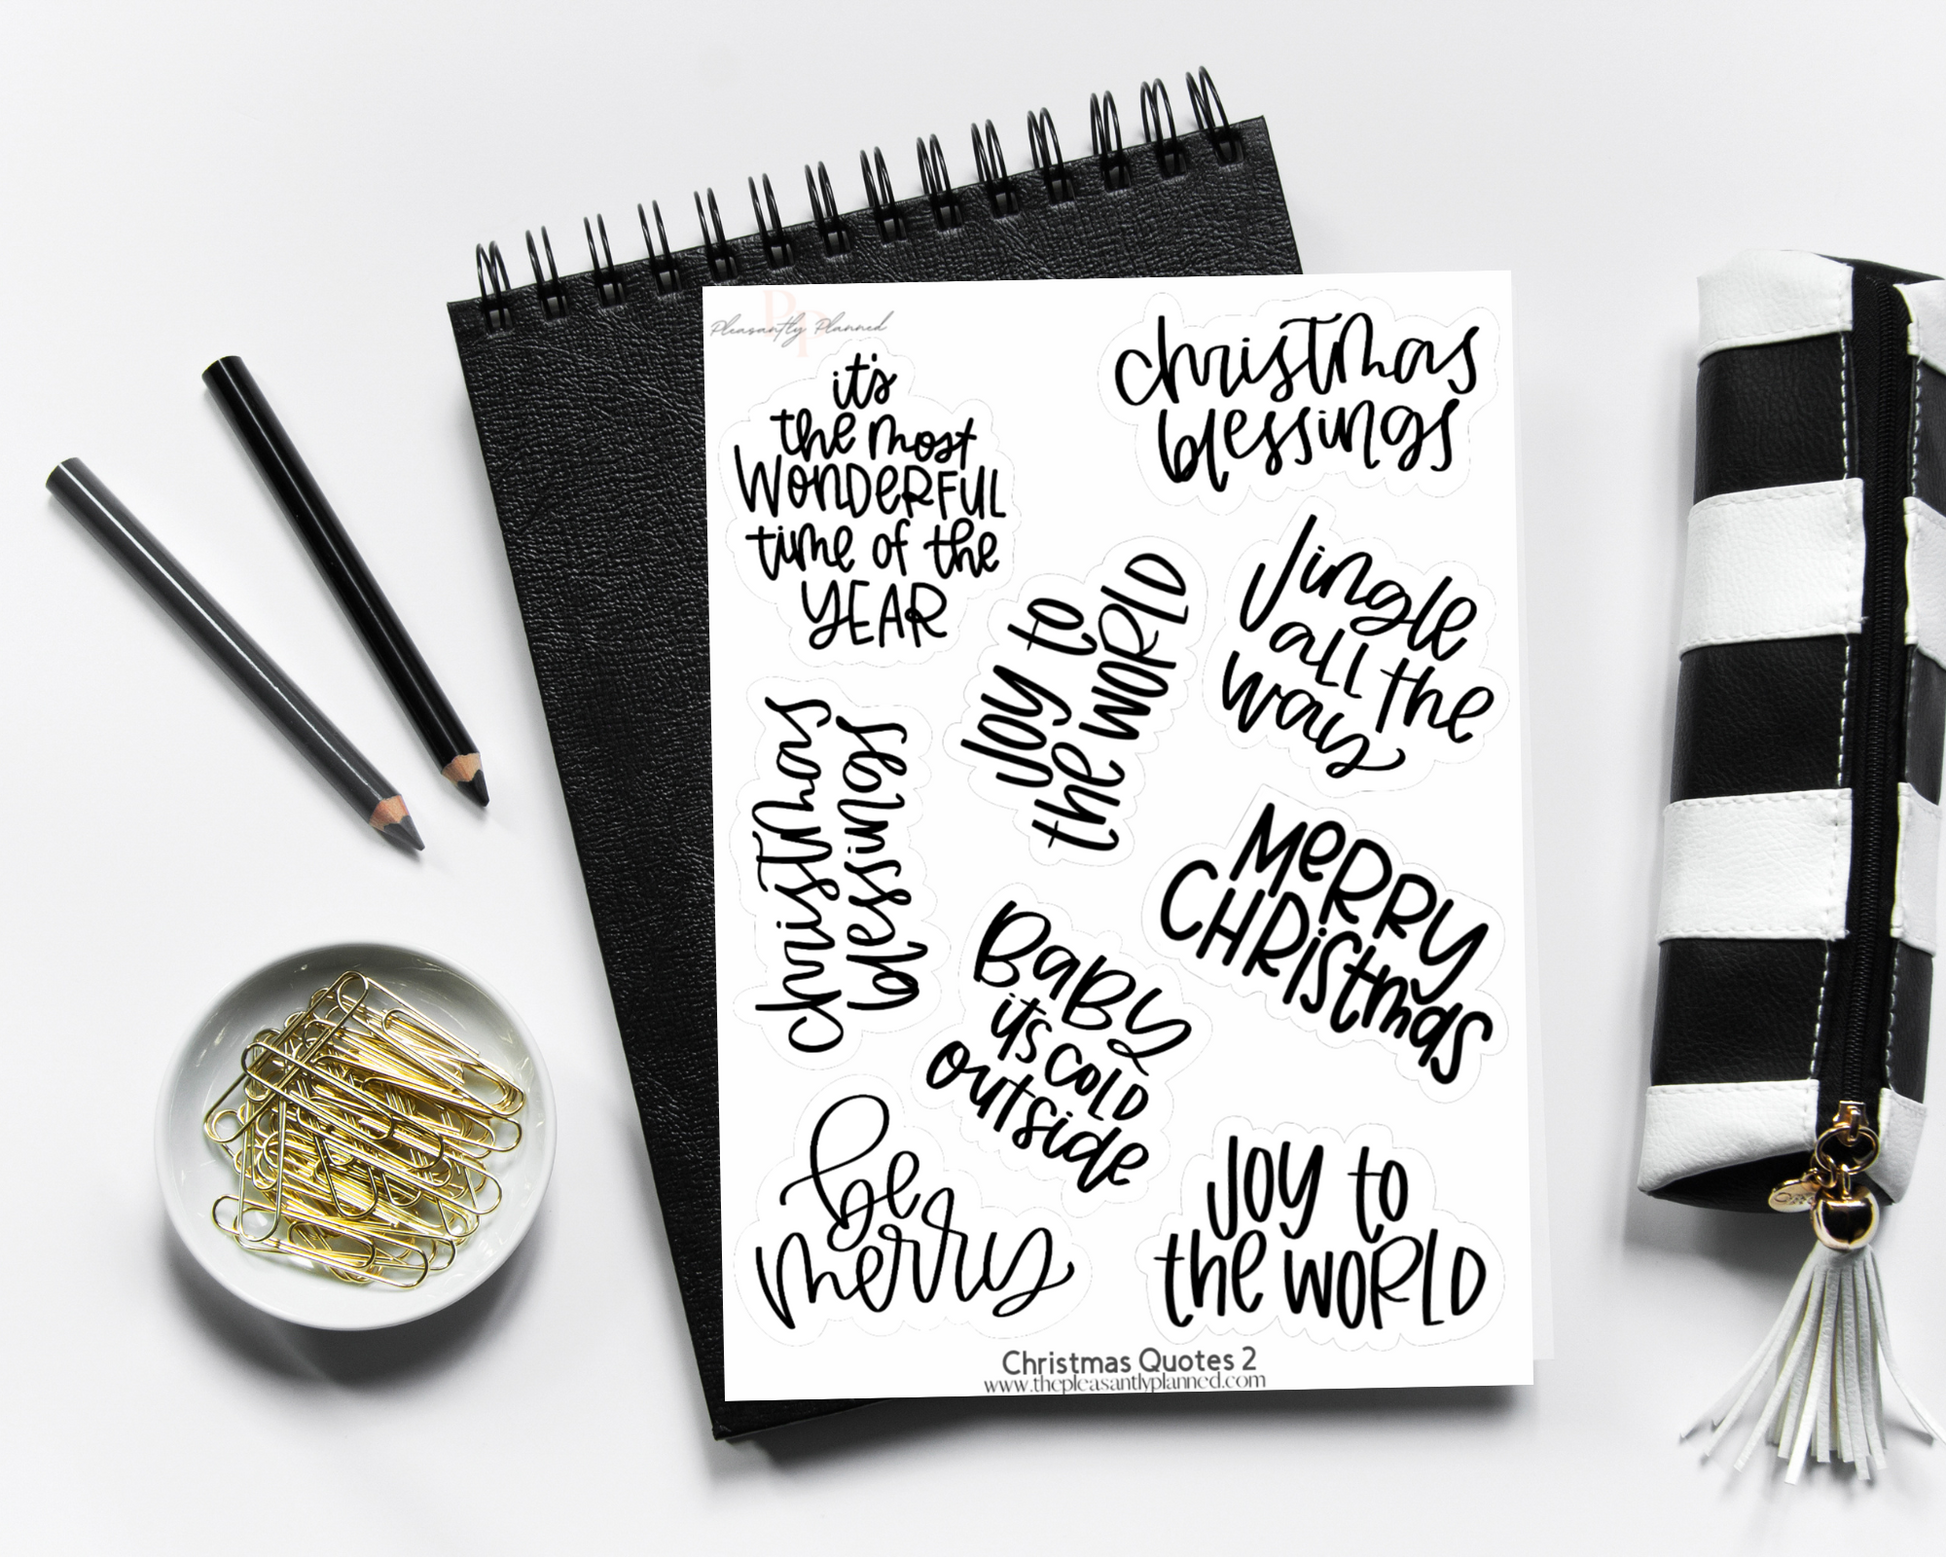 Pleasantly Planned
PP
it's
the most
WONDERFUL
time of the
YEAR
christmas
blessings
Joy to
the WORLD
Jingle
all the
way
christmas
blessings
MeRRY
CHRiStmas
BaBY
it's COLD
outside
be
merry
JOY to
the WORLD
Christmas Quotes 2
www.thepleasantlyplanned.com